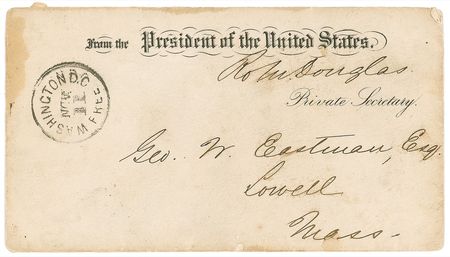 From the President of the United States.
Ro M Douglas.
Private Secretary.
WASHINGTON D.C.
NOV
11
FREE
Geo. W. Eastman, Esq.
Lowell
Mass.